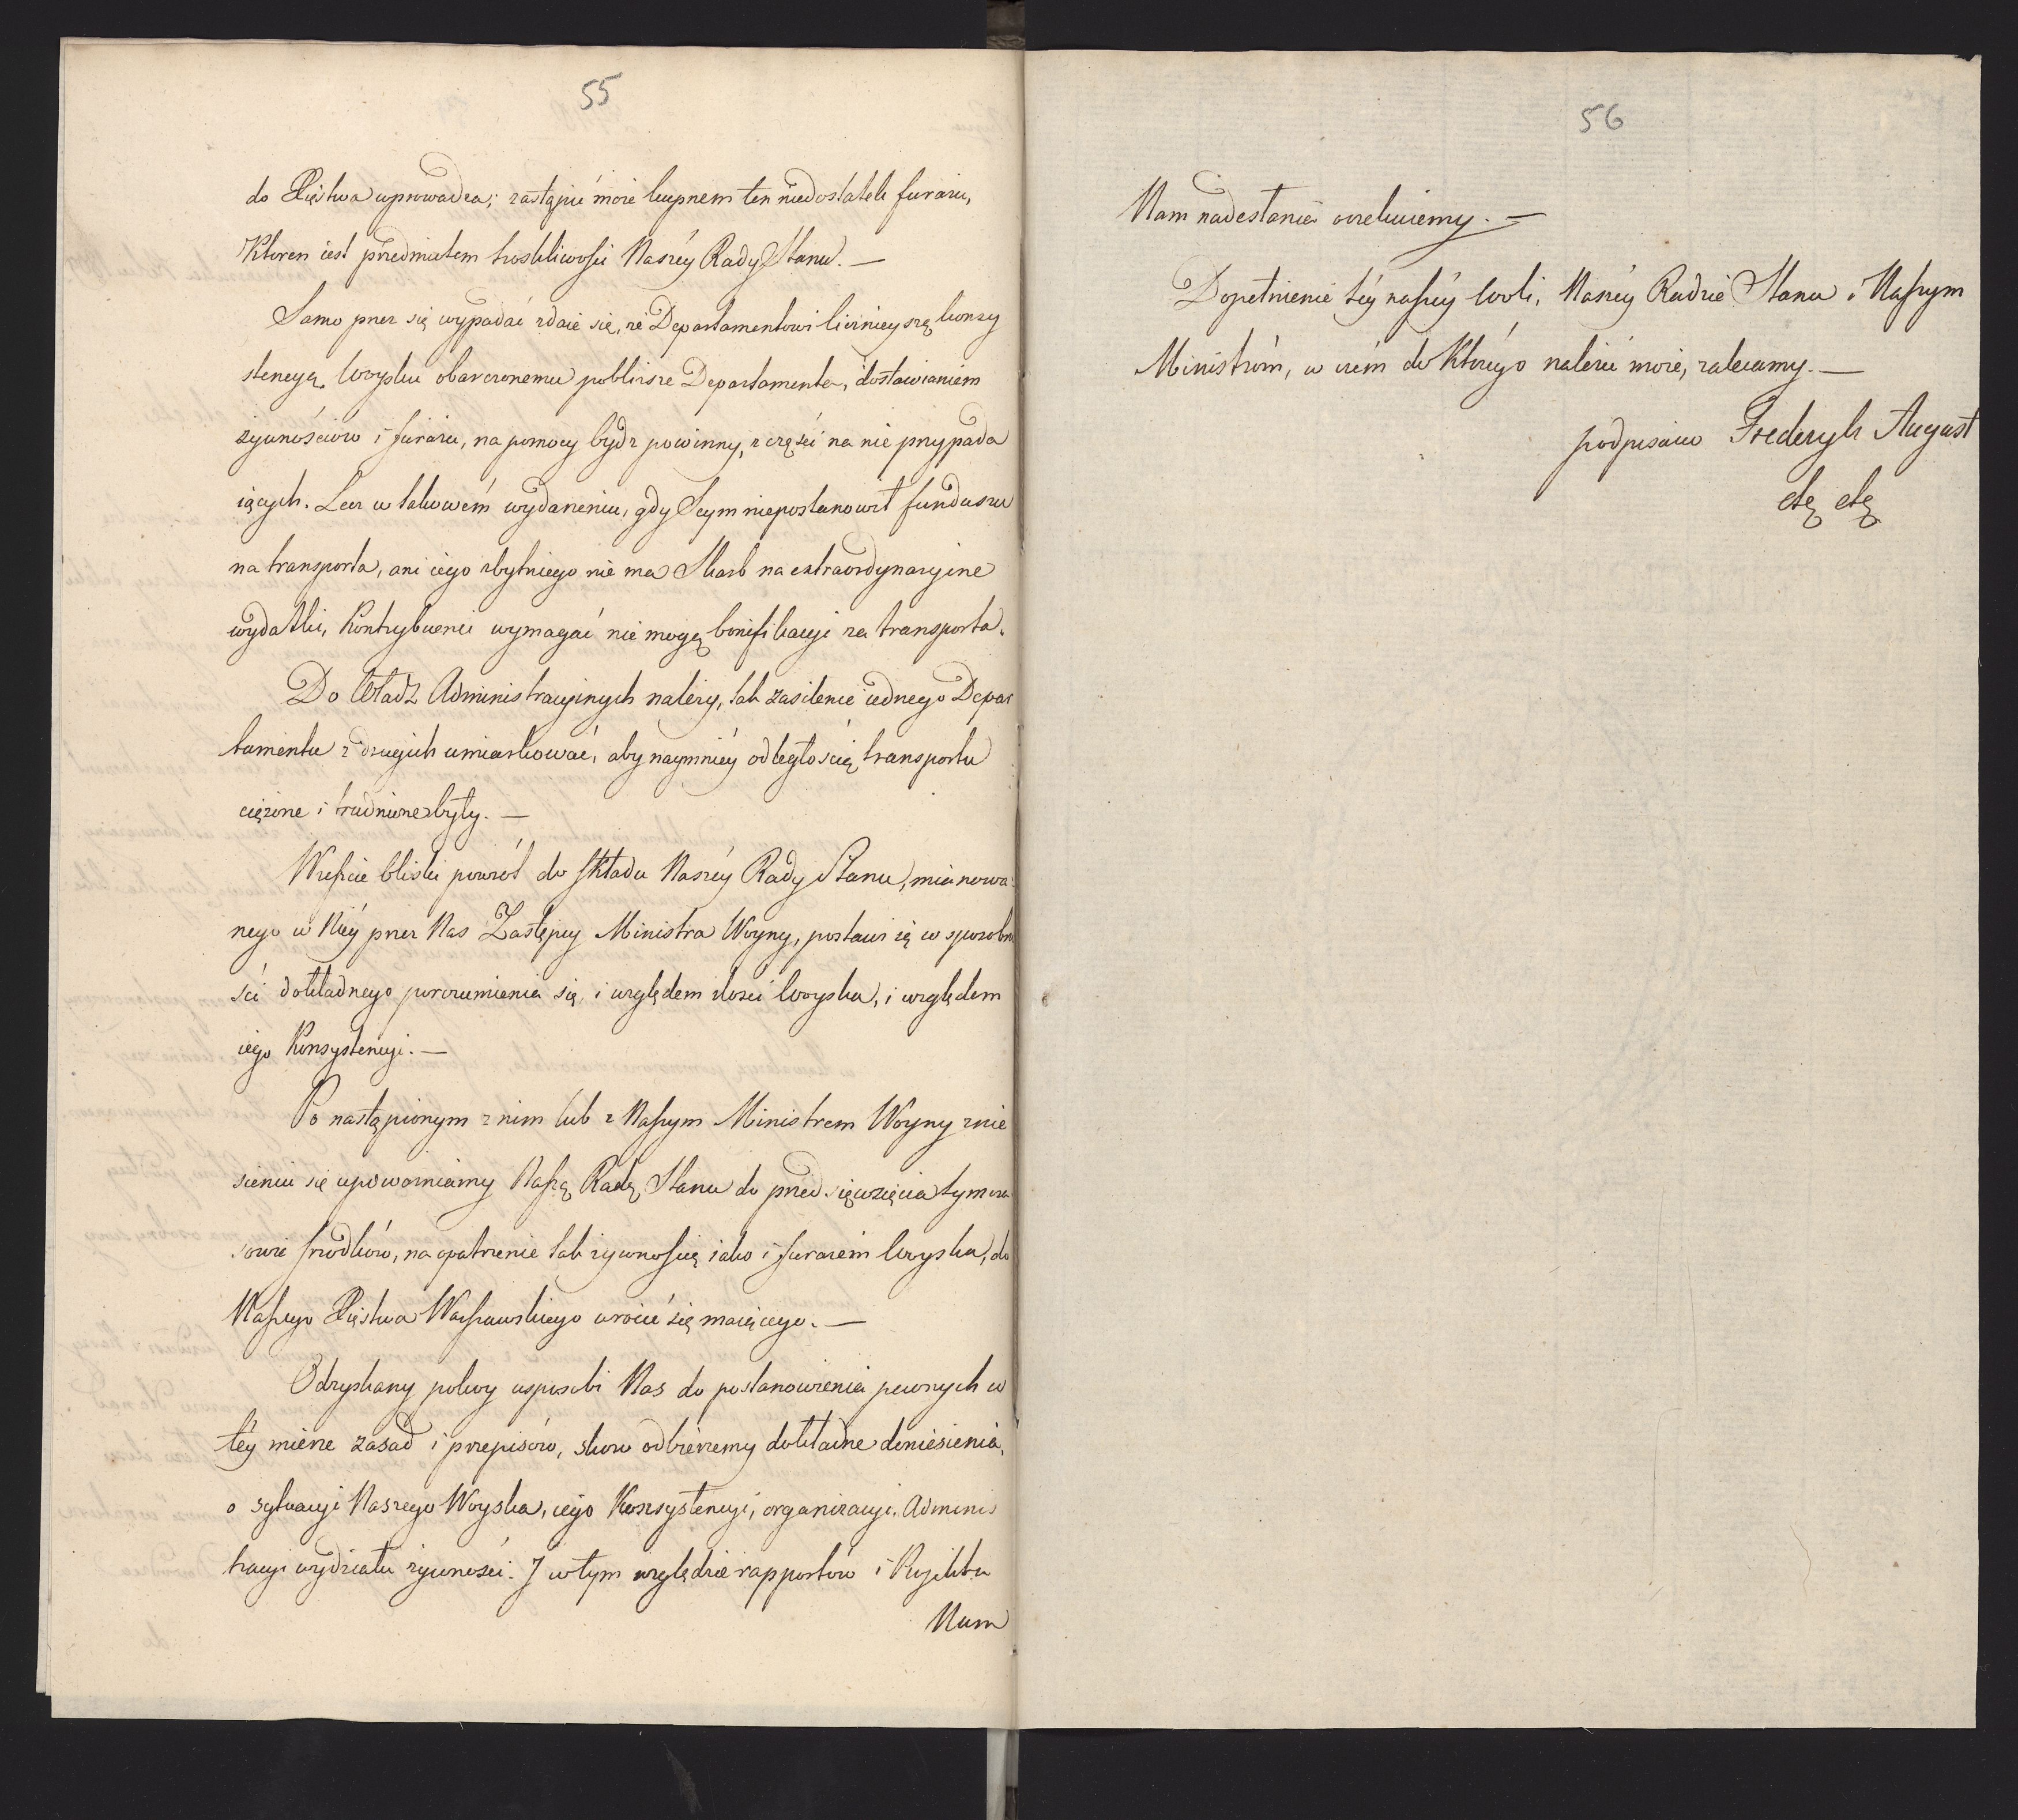 55
do Xięstwa uprowadza; zastąpić może kupnem ten niedostatek furażu,
Ktoren iest przedmiotem troskliwości Naszéy Rady Stanu. —
Samo przez się wypadać zdaie się, że Departamentowi licznieyszą konsy
stencyą Woysku obarczonemu pobliższe Departamenta, dostawianiem
żywnościów i furażu, na pomocy bydz powinny, z części na nie przypada
iących. Lecz w takowém wydarzeniu, gdy Seym niepostanowił funduszu
na transporta, ani iego zbytniego nie ma Skarb na extraordynaryine
wydatki, Kontrybuenci wymagać nie mogą bonifikacyi za transporta.
Do Władz Administracyinych należy, tak zasilenie iednego Depar
tamentu z drugich umiarkować, aby naymniéy odległością transportu
ciężone i trudnione były. —
Wreszcie bliski powrót do składu Naszéy Rady Stanu, mianowa
nego w Niéy przez Nas Zastępcy Ministra Woyny, postawi ią w sposobno
ści dokładnego porozumienia się i względem ilości Woyska, i względem
iego Konsystencyi. —
Po nastąpionym z nim lub z Naszym Ministrem Woyny znie
sieniu się upoważniamy Naszą Radę Stanu do przedsięwzięcia tymcza
sowie srzodków, na opatrzenie tak żywnością iako i furażem Woyska, do
Naszego Xięstwa Warszawskiego wrócić się maiącego. —
Odzyskany pokoy usposobi Nas do postanowienia pewnych w
téy mierze zasad i przepisów, skoro odbierzemy dokładne doniesienia,
o sytuacyi Naszego Woyska, iego Konsystencyi, organizacyi, Adminis
tracyi wydziału żywności. I w tym względzie rapportów i Projektu
Nam
56
Nam nadesłania oczekuiemy. —
Dopełnienie téy naszéy woli, Naszéy Radzie Stanu i Naszym
Ministróm, w czém do Którégo należeć może, zalecamy. —
podpisano Frederyk August
etc etc